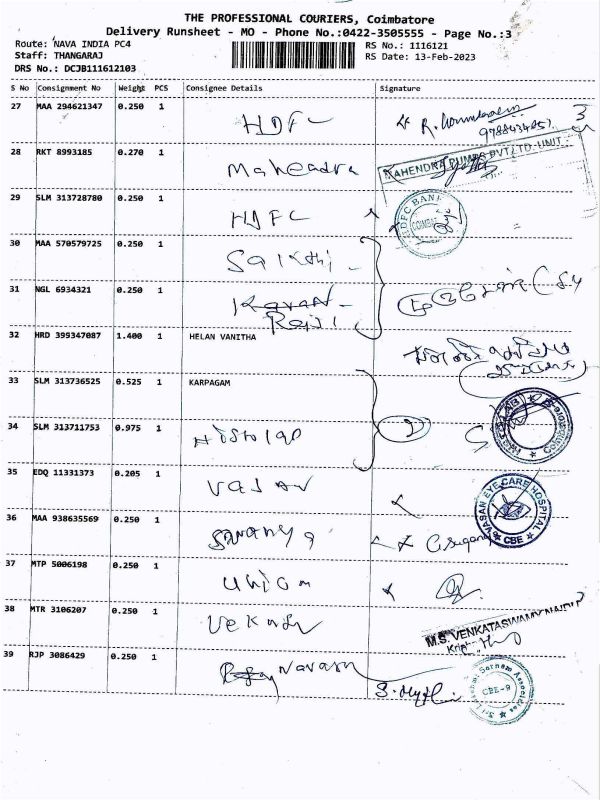 THE PROFESSIONAL COURIERS, Coimbatore
Delivery Runsheet - MO - Phone No.:0422-3505555 - Page No.:3
Route: NAVA INDIA PC4 RS No.: 1116121
Staff: THANGARAJ RS Date: 13-Feb-2023
DRS No.: DCJB111612103
S No Consignment No Weight PCS Consignee Details Signature
27 MAA 294621347 0.250 1 HDFC
28 RKT 8993185 0.270 1 Mahendra MAHENDRA PUMPS PVT LTD-UNIT
29 SLM 313728780 0.250 1 HDFC HDFC BANK
30 MAA 570579725 0.250 1 Sakthi
31 NGL 6934321 0.250 1
32 HRD 399347087 1.400 1 HELAN VANITHA
33 SLM 313736525 0.525 1 KARPAGAM
34 SLM 313711753 0.975 1 Histolab
35 EDQ 11331373 0.205 1 Vasan VASAN EYE CARE HOSPITAL CBE
36 MAA 938635569 0.250 1
37 MTP 5006198 0.250 1 Unicom
38 MTR 3106207 0.250 1 M.S. VENKATASWAMY NAIDU
39 RJP 3086429 0.250 1 CBE-9